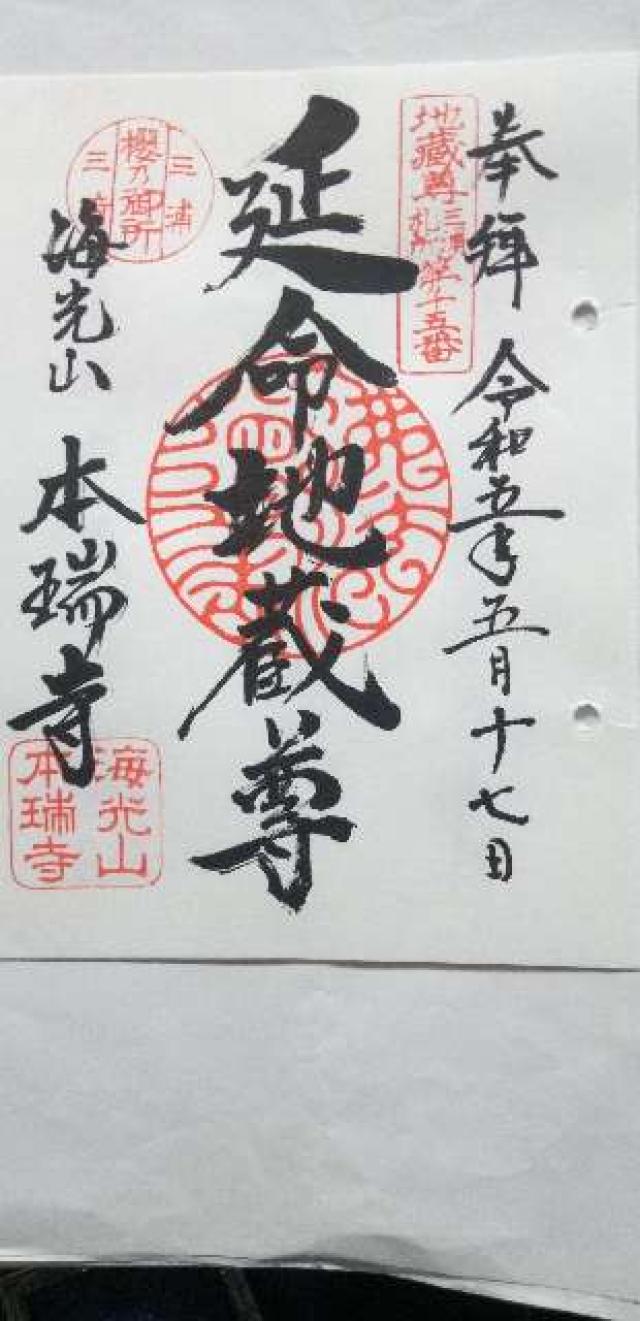 奉拝 令和五年五月十七日
地蔵尊三浦札所第十五番
延命地蔵尊
三浦
櫻乃御所
三崎
海光山 本瑞寺
海光山
本瑞寺